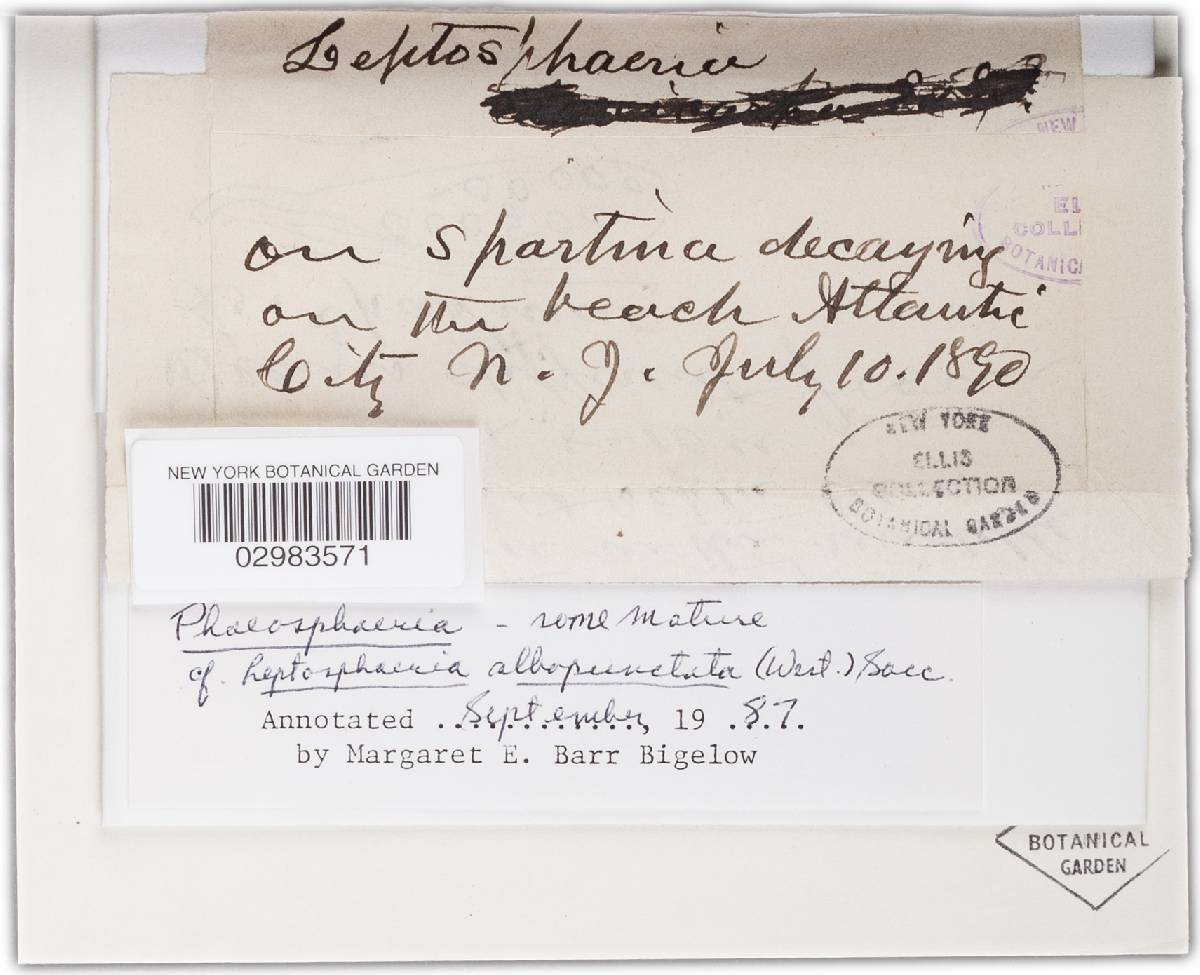 Leptosphaeria
NEW
on Spartina decaying
EL
COLL
BOTANIC
on the beach Atlantic
City N. J. July 10. 1890
NEW YORK
ELLIS
COLLECTION
BOTANICAL GARDEN
NEW YORK BOTANICAL GARDEN
02983571
Phaeosphaeria - some mature
cf. Leptosphaeria albopunctata (West.) Sacc.
Annotated September, 19 87.
by Margaret E. Barr Bigelow
BOTANICAL
GARDEN